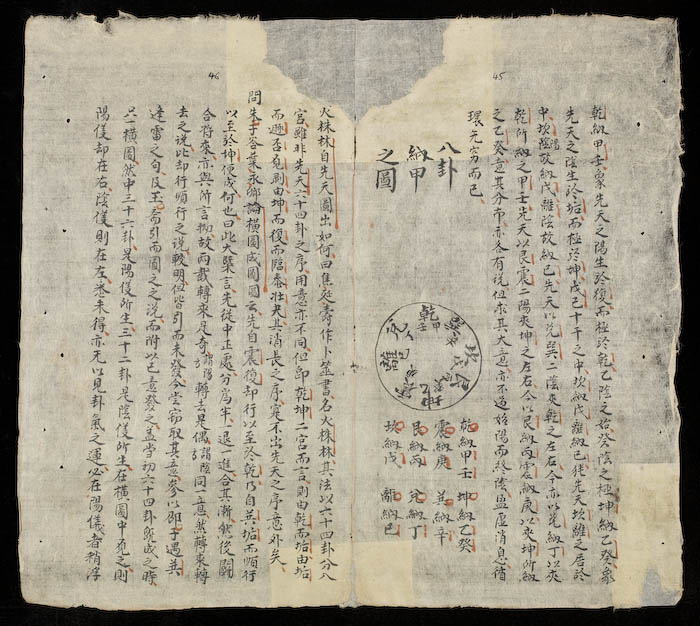 45
乾納甲壬象先天之陽生於復而極於乾乙陰之始癸陰之極坤納乙癸象
先天之陰生於垢而極於坤戊己十干之中坎納戊離納己猶先天坎離之居於
中坎陽故納戊離陰故納己先天以兌巽二陰夾乾之左右今亦以兌納丁以夾
乾所納之甲壬先天以艮震二陽夾坤之左右今以艮納丙震納庚以夾坤所納
之乙癸意其分布亦各有説但求其大意亦不過始陽而終陰盈虛消息循
環无窮而已
八卦
納甲
之圖
乾甲壬
兌
離
乾納甲壬 坤納乙癸
震納庚 巽納辛
艮納丙 兌納丁
坎納戊 離納己
46
火株林自先天圖出如何曰焦延壽作卜筮書名火株林其法以六十四卦分八
宮雖非先天六十四卦之序用意亦不同但即乾坤二宮而言則由乾而垢由垢
而遯否觀剝由坤而復而臨泰壯夬其消長之序寔不出先天之序意外矣
問朱子答葉永卿論橫圖成圓圖云先自震復却行以至於乾乃自巽垢而順行
以至於坤便成何也曰此大槩言先從中正處分為半一退一進合其漸然後闢
合將來亦與所言拗故兩截轉來是奇謂陽轉去是偶謂陰同一意然轉來轉
去之説此却行順行之説較明但皆引而未發今嘗竊取其意參以邵子遇巽
逢雷之句及玉齋引而圓之之説而附以己意發之盖當初六十四卦既成之時
只一橫圖然中三十六卦是陽儀所生三十二卦是陰儀所生在橫圖中觀之則
陽儀却在右陰儀則在左悉未得亦无以見卦氣之運必在陽儀者稍浮